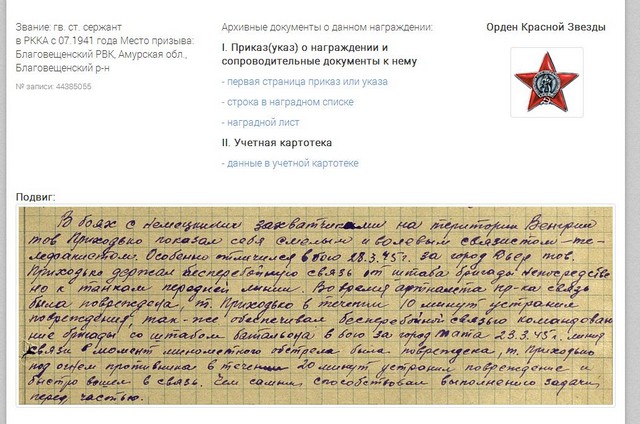 Звание: гв. ст. сержант
в РККА с 07.1941 года Место призыва:
Благовещенский РВК, Амурская обл.,
Благовещенский р-н
№ записи: 44385055
Архивные документы о данном награждении:
I. Приказ(указ) о награждении и
сопроводительные документы к нему
- первая страница приказ или указа
- строка в наградном списке
- наградной лист
II. Учетная картотека
- данные в учетной картотеке
Орден Красной Звезды
Подвиг:
В боях с Немецкими захватчиками на територии Венгрии
тов Приходько показал себя смелым и волевым связистом-те-
лефонистом. Особенно отличился в бою 28.3.45г. за город Дьер тов.
Приходько держал бесперебойную связь от штаба бригады непосредстве
но к танкам передней линии. Во время артналета пр-ка связь
была повреждена, т. Приходько в течении 10 минут устранил
повреждения, так же обеспечивал бесперебойной связью командова
ние бригады со штабом батальона в бою за город Тата 23.3.45г. линия
связи в момент минометного обстрела была повреждена, т. Приходько
под огнем противника в течении 20 минут устранил повреждение и
быстро вошел в связь. Чем самым способствовал выполнению задачи
перед частью.